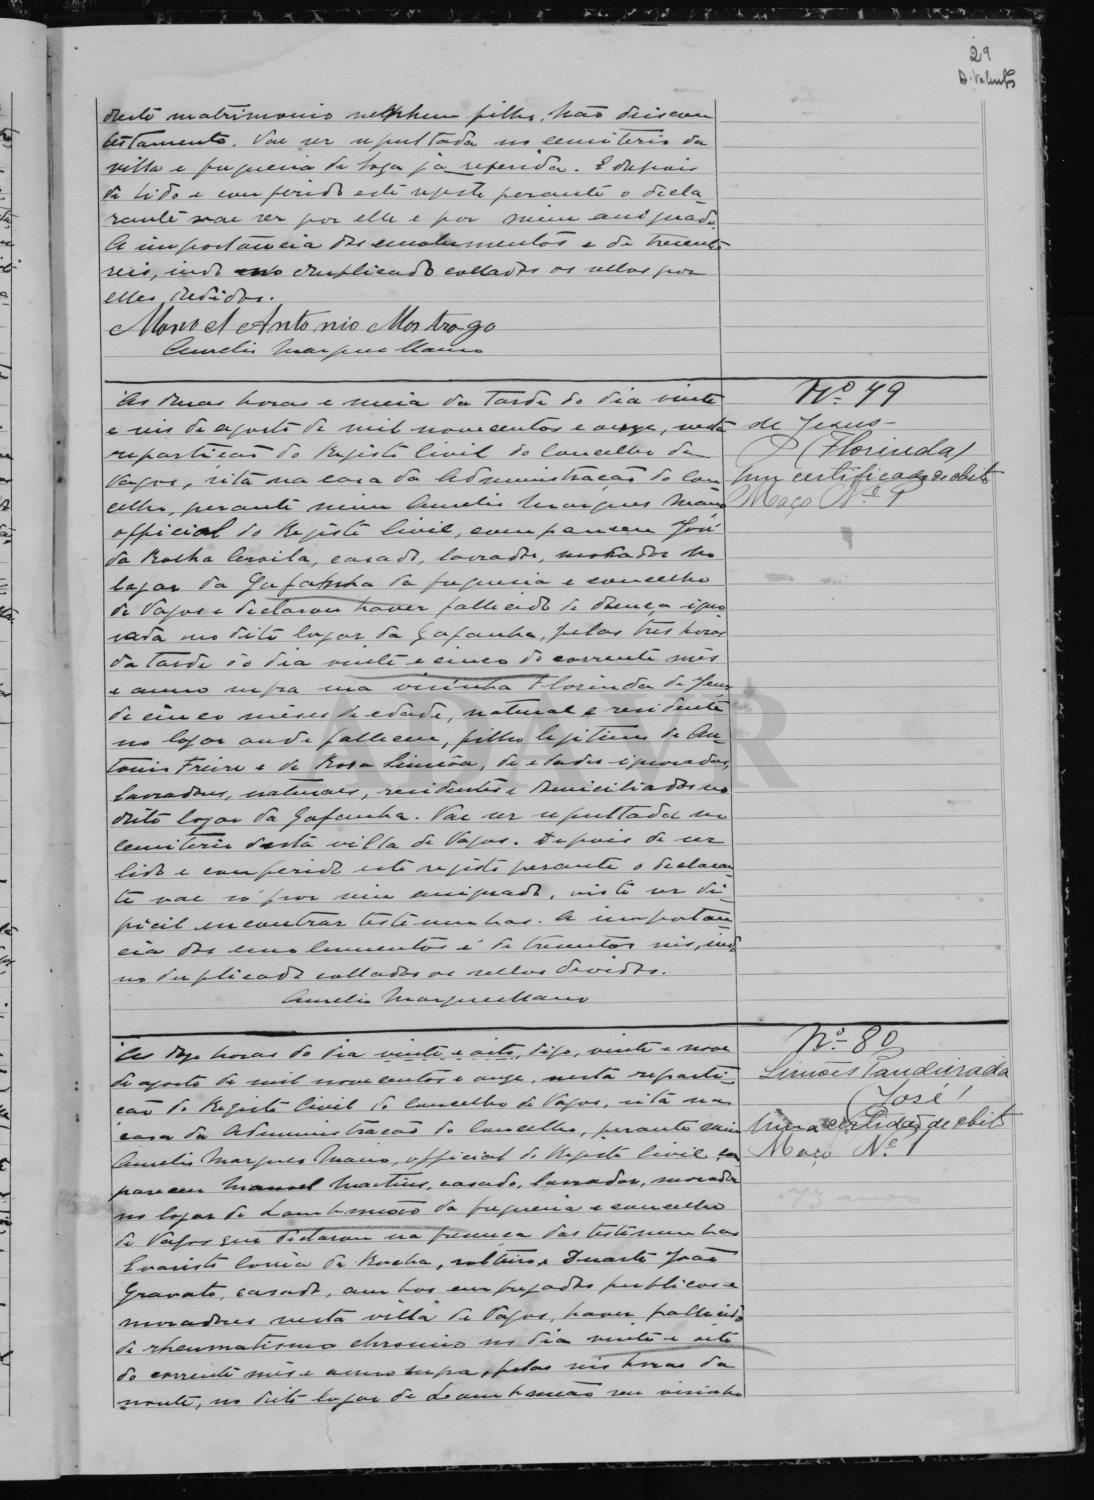 29
D. Valente
deste matrimonio nenhum filho, não deixou
testamento. Vae ser sepultada no cemiterio da
villa e freguesia de Soza já referida. E depois
de lido e conferido este registo perante o decla-
rante vae ser por elle e por mim assignado.
A importancia dos emolumentos é de trezentos
reis, indo no duplicado collados os sellos por
elles devidos.
Manoel Antonio Mostrago
Aurelio Marques Mano
Nº 79
de Jesus
(Florinda)
Um certificado de obito
Maço Nº 9
Ás duas horas e meia da tarde do dia vinte
e seis de agosto de mil novecentos e onze, nesta
repartição do Registo Civil do Concelho de
Vagos, sita na casa da Administração do Con-
celho, perante mim Aurelio Marques Mano
official do Registo Civil, compareceu José
da Rocha, casado, lavrador, morador no
logar da Gafanha da freguesia e concelho
de Vagos e declarou haver fallecido de doença igno-
rada no dito logar da Gafanha, pelas tres horas
da tarde do dia vinte e cinco do corrente mês
e anno supra sua visinha Florinda de Jesus
de cinco mêses de edade, natural e residente
no logar onde falleceu, filha legitima de An-
tonio Freire e de Rosa Simôa, de edades ignoradas,
lavradores, naturaes, residentes e domiciliados no
dito logar da Gafanha. Vae ser sepultada no
cemiterio desta villa de Vagos. Depois de ser
lido e conferido este registo perante o declaran-
te vae só por mim assignado, visto ser di-
ficil encontrar testemunhas. A importan-
cia dos emolumentos é de trezentos reis, indo
no duplicado collados os sellos devidos.
Aurelio Marques Mano
Nº 80
Simões Pandeirada
(José)
Uma certidão de obito
Maço Nº 1
73 anos
Ás doze horas do dia vinte e oito, digo, vinte e nove
de agosto de mil novecentos e onze, nesta reparti-
ção do Registo Civil do Concelho de Vagos, sita na
casa da Administração do Concelho, perante mim
Aurelio Marques Mano, official do Registo Civil com-
pareceu Manoel Martins, casado, lavrador, morador
no logar de Lombomeão da freguesia e concelho
de Vagos que declarou na presença das testemunhas
Evaristo Corrêa da Rocha, solteiro e Duarte João
Gravato, casado, ambos empregados publicos e
moradores nesta villa de Vagos, haver fallecido
de rheumatismo chronico no dia vinte e oito
do corrente mês e anno supra, pelas seis horas da
noute, no dito logar de Lombomeão seu visinho
ADAVR